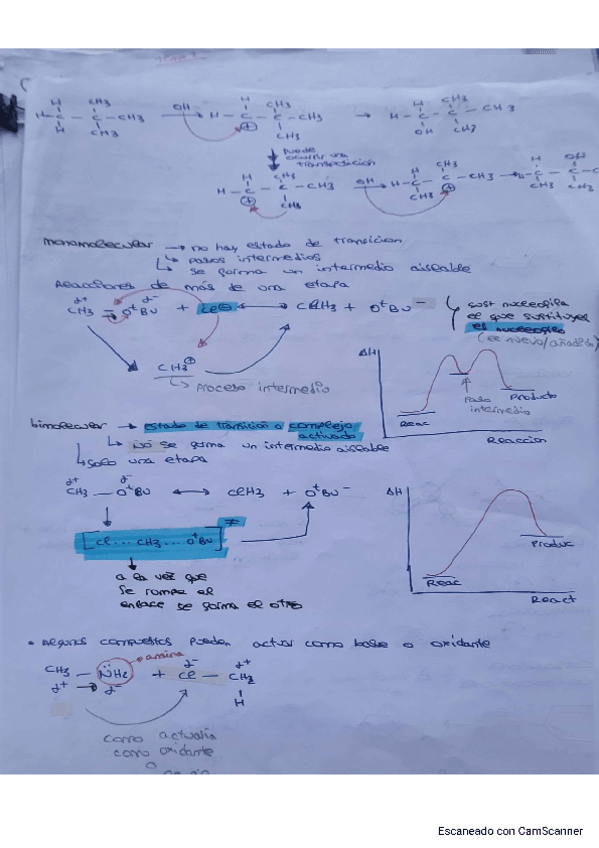 H CH3 OH H CH3 H CH3
H - C - C - CH3 → H - C - C - CH3 → H - C - C - CH3
H CH3 ⊕ CH3 OH CH3
puede
ocurrir una
H CH3 OH H CH3 H OH
H - C - C - CH3 → H - C - C - CH3 → H - C - C - C
⊕ CH3 CH3 ⊕ CH3 CH3
monomolecular → no hay estado de transicion
↳ pasos intermedios
↳ se forma un intermedio aiseable
Reacciones de más de una etapa
δ+ δ-
CH3 - OtBu + Cl⊖ ↔ ClCH3 + OtBu-
sust nucleofila
el que sustituyes
es nucleofilo
(el nuevo/añadido)
CH3+
↳ proceso intermedio
ΔH
Producto
Paso
intermedio
Reac
Reaccion
bimolecular → estado de transicion o complejo
activado
↳ No se forma un intermedio aiseable
↳ solo una etapa
δ+ δ-
CH3 - OtBu ↔ ClCH3 + OtBu-
[Cl ... CH3 ... OtBu]≠
a la vez que
se rompe el
enlace se forma el otro
ΔH
Produc
Reac
React
• Algunos compuestos pueden actuar como base o oxidante
amina
CH3 - N̈H2 + Cl - CH2
δ+ → δ- δ- δ+
H
como actuaría
como oxidante
o
Escaneado con CamScanner